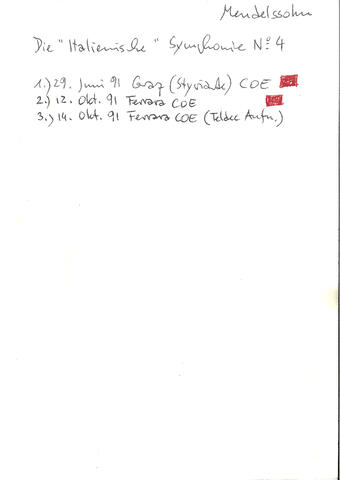 Mendelssohn
Die "Italienische" Symphonie Nº 4
1.) 29. Juni 91 Graz (Styriarte) COE
2.) 12. Okt. 91 Ferrara COE
3.) 14. Okt. 91 Ferrara COE (Teldec Aufn.)